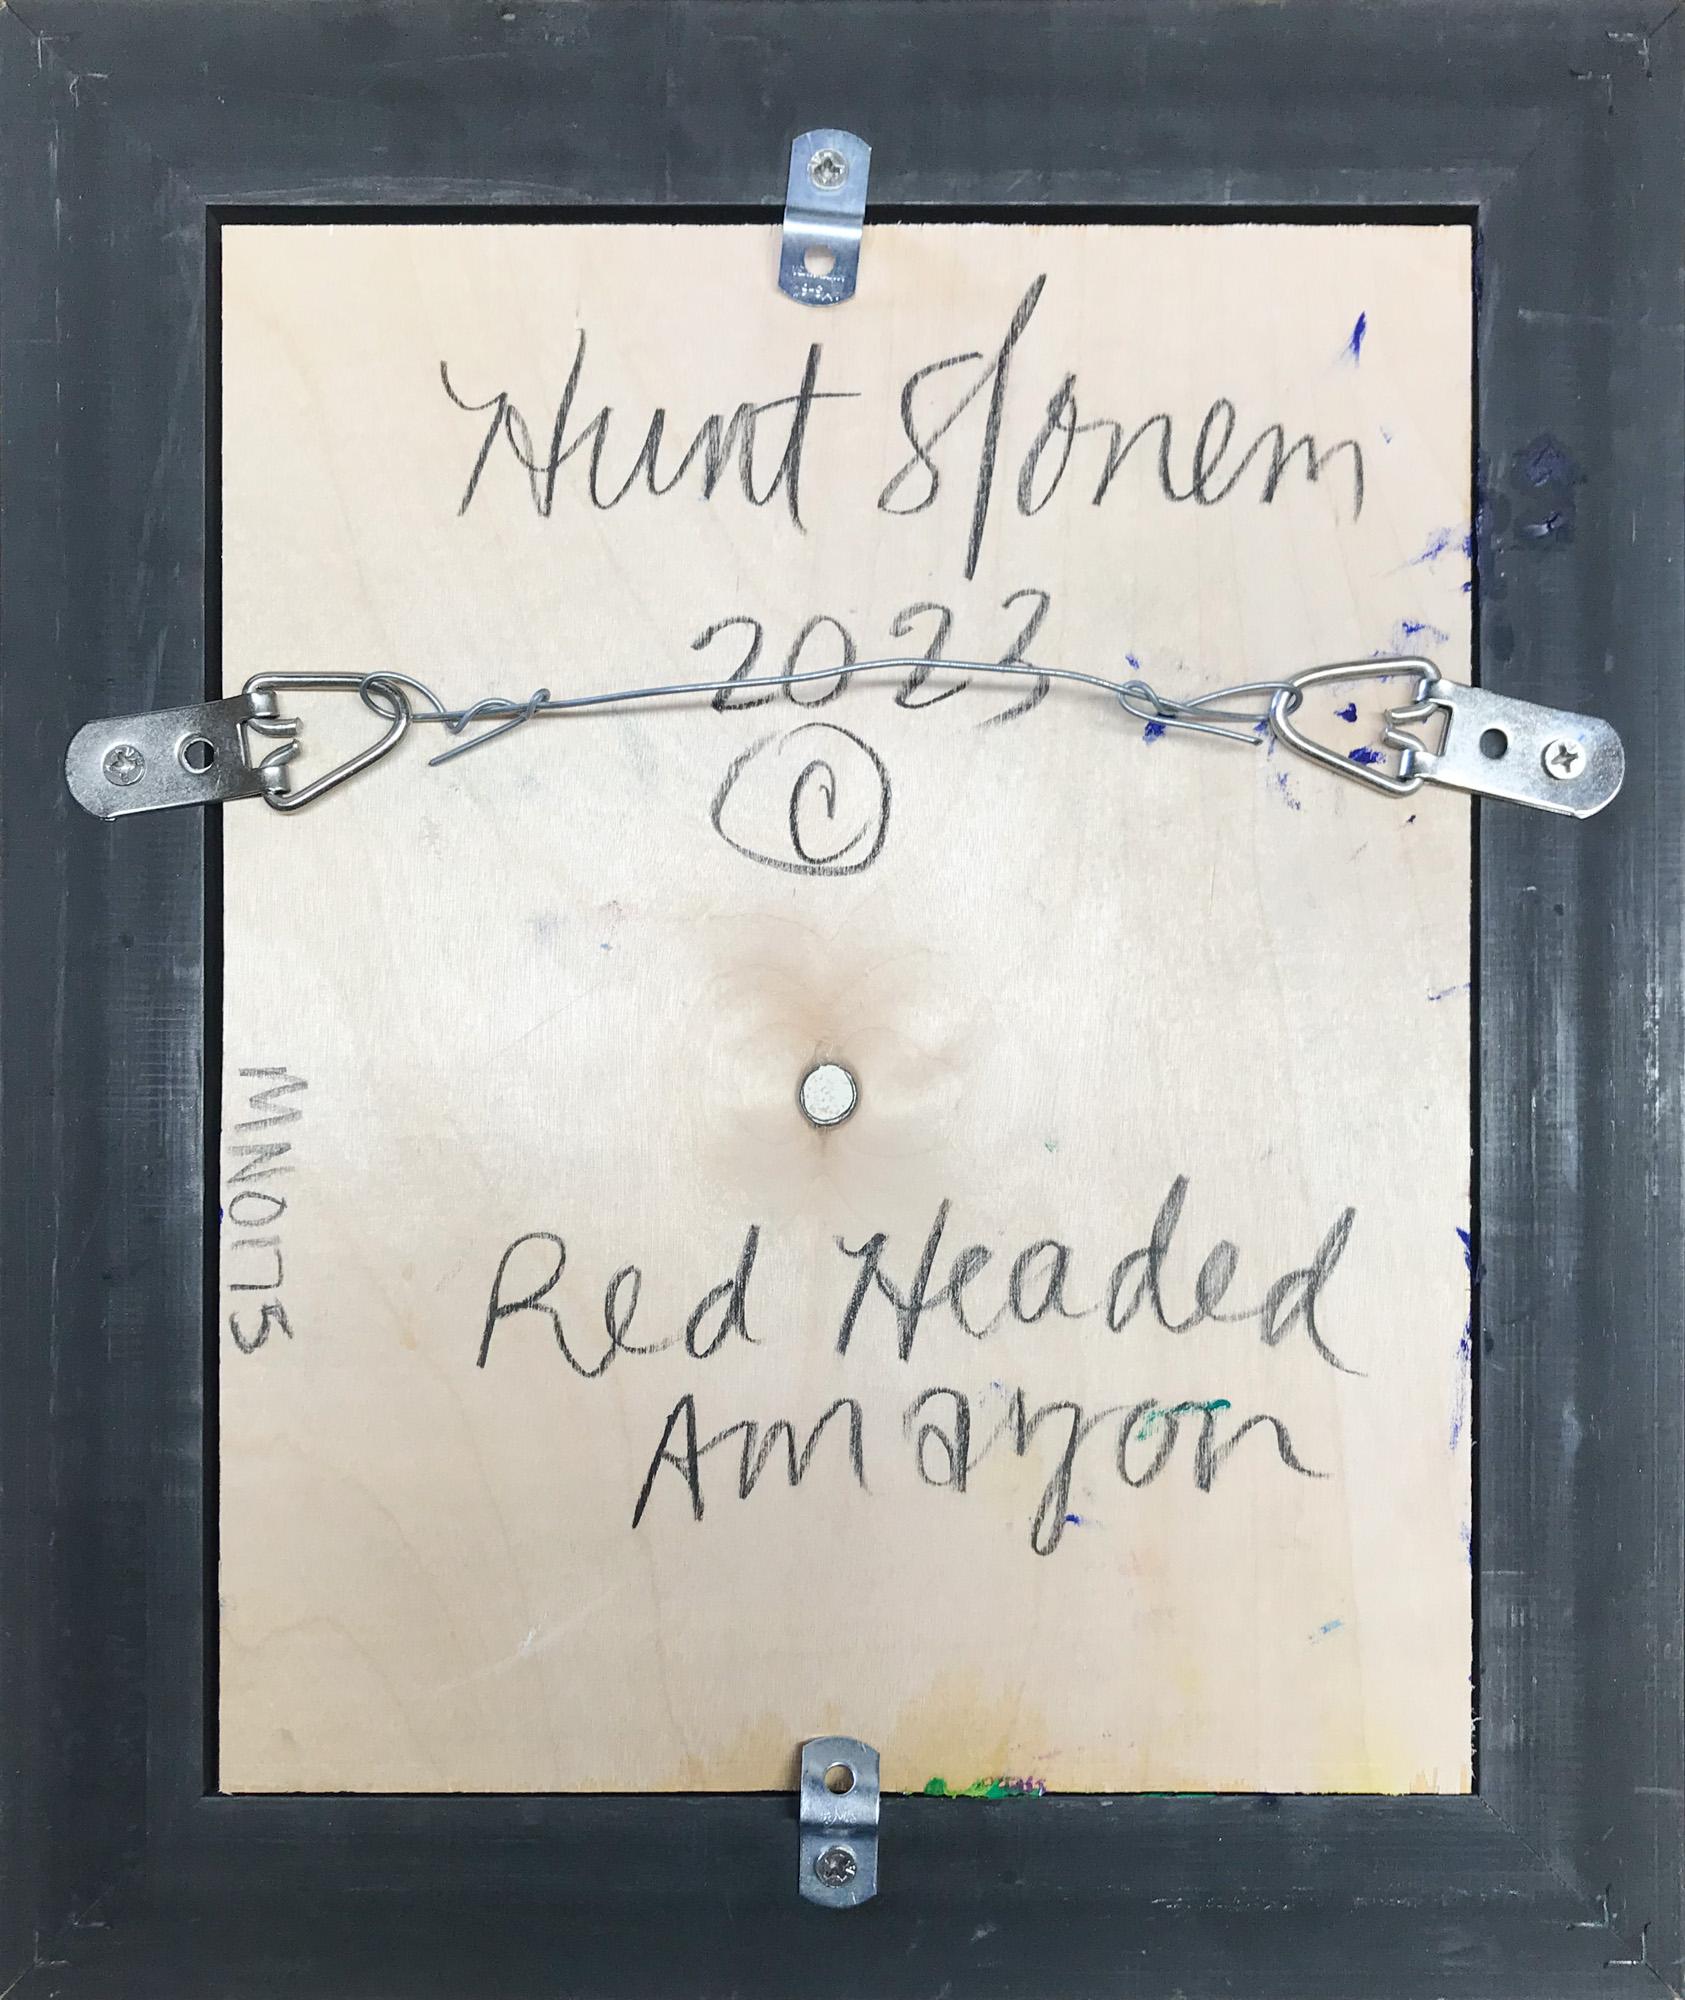 Hunt Slonem
2023
©
Red Headed
Amazon